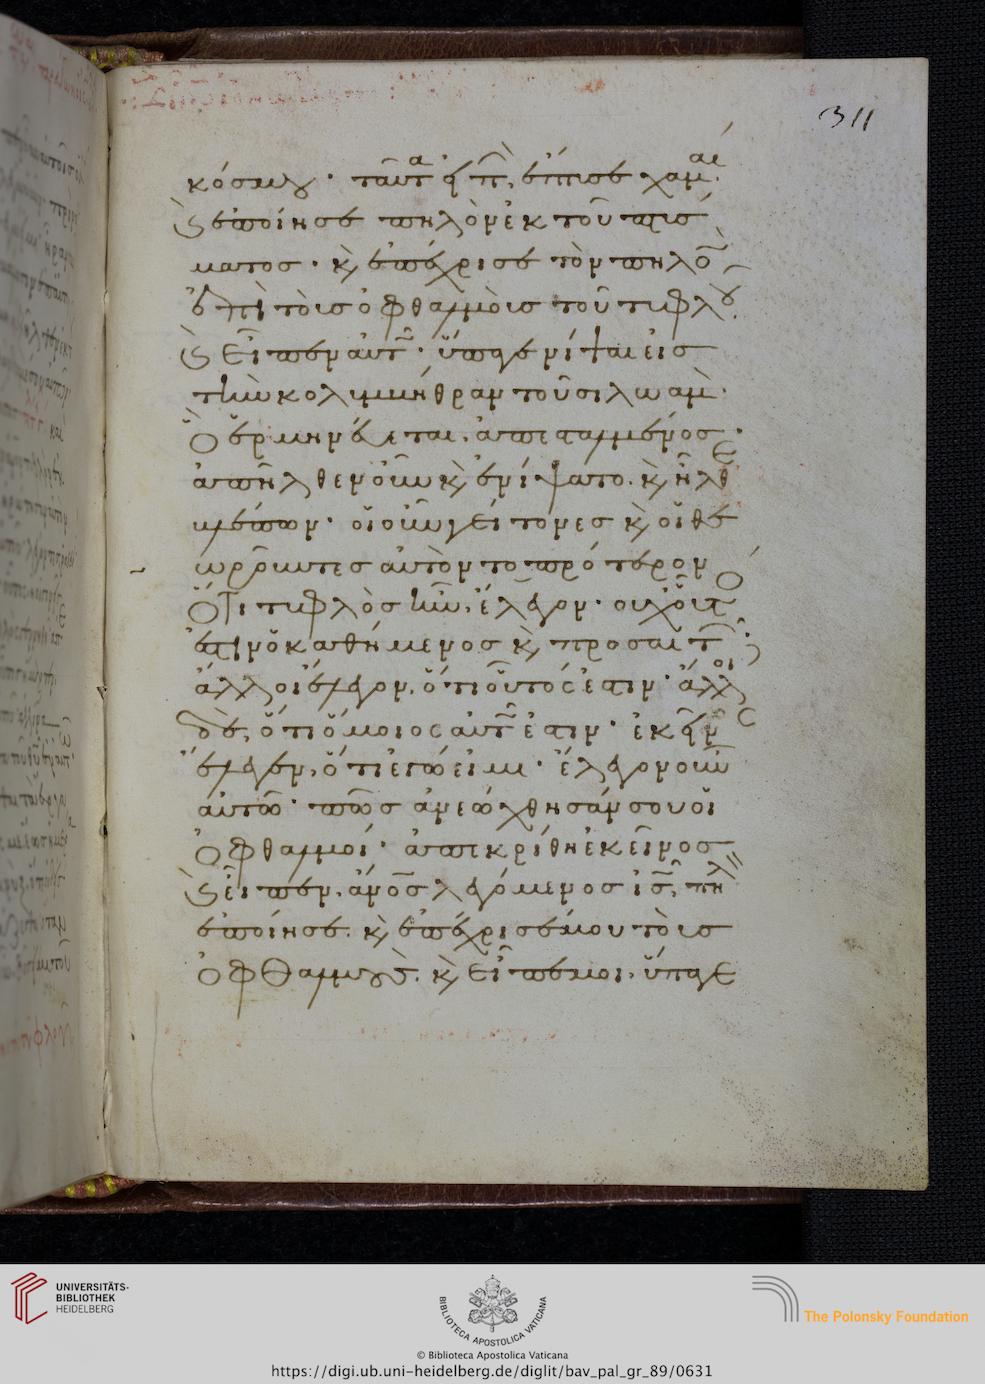 311
κόσμου· ταῦτα εἰπὼν, ἔπτυσε χαμαί·
καὶ ἐποίησε πηλὸν ἐκ τοῦ πτύσ
ματος· καὶ ἐπέχρισε τὸν πηλὸν
ἐπὶ τοὺς ὀφθαλμοὺς τοῦ τυφλοῦ·
καὶ εἶπεν αὐτῶ· ὕπαγε νίψαι εἰς
τὴν κολυμβήθραν τοῦ σιλωάμ·
ὃ ἑρμηνεύεται, ἀπεσταλμένος·
ἀπῆλθεν οὖν καὶ ἐνίψατο. καὶ ἦλθε
βλέπων· οἱ οὖν γείτονες καὶ οἱ θε
ωροῦντες αὐτὸν το πρότερον
ὅτι τυφλὸς ἦν, ἔλεγον· οὐχ οὗτος
ἐστιν ὁ καθήμενος καὶ προσαιτῶν;
ἄλλοι ἔλεγον, ὅτι οὗτός ἐστιν· ἄλλοι
δὲ, ὅτι ὅμοιος αὐτῶ ἐστιν· ἐκεῖνος
ἔλεγεν, ὅτι ἐγώ εἰμι· ἔλεγον οὖν
αὐτῶ· πῶς ἀνεώχθησάν σου οἱ
ὀφθαλμοί· ἀπεκρίθη ἐκεῖνος
καὶ εἶπεν, ἄνος λεγόμενος ις, πηλὸν
ἐποίησε. καὶ ἐπέχρισέ μου τοὺς
ὀφθαλμοὺς. καὶ εἶπέ μοι, ὕπαγε
UNIVERSITÄTS-
BIBLIOTHEK
HEIDELBERG
BIBLIOTECA APOSTOLICA VATICANA
The Polonsky Foundation
© Biblioteca Apostolica Vaticana
https://digi.ub.uni-heidelberg.de/diglit/bav_pal_gr_89/0631